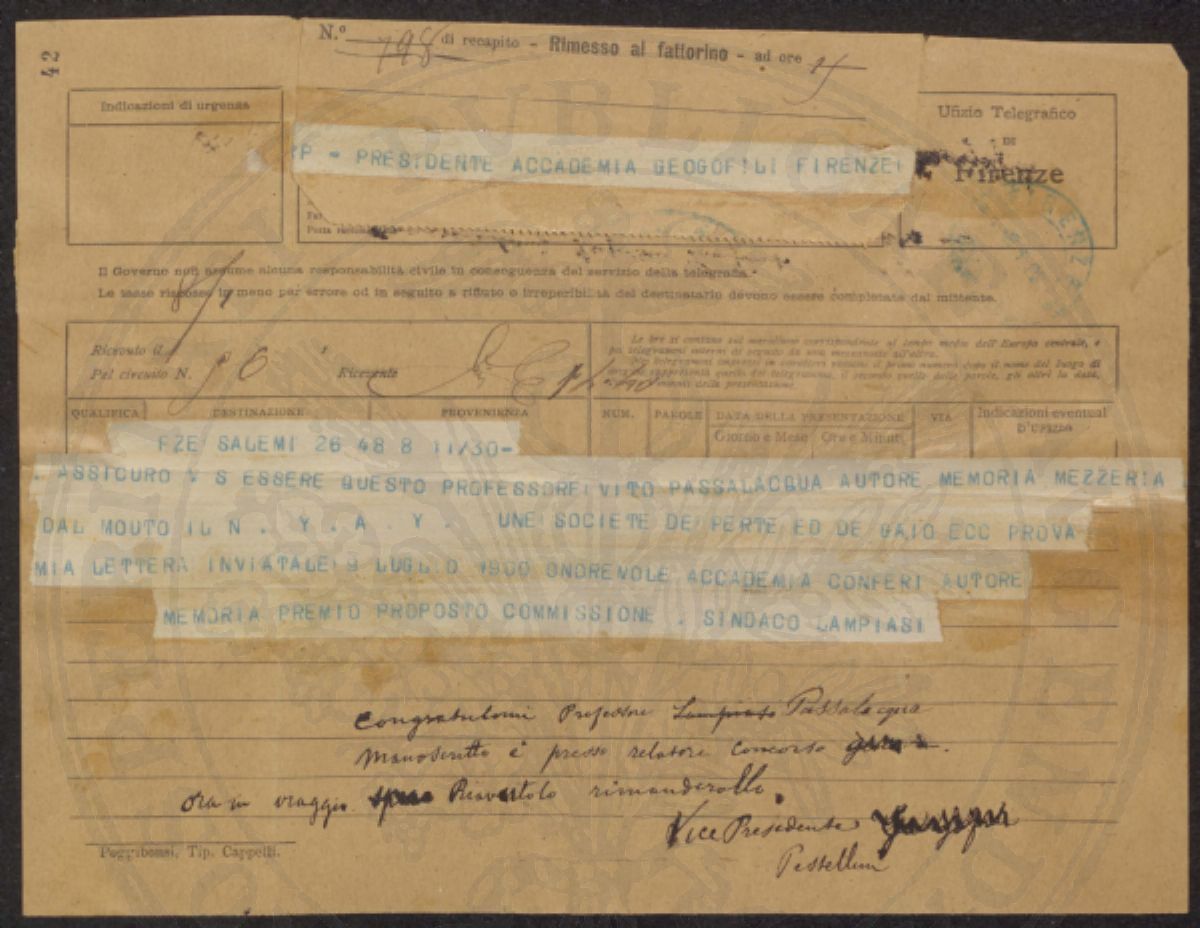 42
N.º 798 di recapito - Rimesso al fattorino - ad ore
Indicazioni di urgenza
Ufizio Telegrafico
DI
Firenze
RP - PRESIDENTE ACCADEMIA GEOGOFILI FIRENZE
Il Governo non assume alcuna responsabilità civile in conseguenza del servizio della telegrafia.
Le tasse riscosse in meno per errore od in seguito a rifiuto o irreperibilità del destinatario devono essere completate dal mittente.
Ricevuto il
Pel circuito N. 96 Ricevente
Le ore si contano sul meridiano corrispondente al tempo medio dell'Europa centrale, e
QUALIFICA DESTINAZIONE PROVENIENZA NUM. PAROLE DATA DELLA PRESENTAZIONE VIA Indicazioni eventuali
Giorno e Mese Ore e Minuti D'URGENZA
FZE SALEMI 26 48 8 11/30-
. ASSICURO V S ESSERE QUESTO PROFESSORE VITO PASSALACQUA AUTORE MEMORIA MEZZERIA
DAL MOUTO IL N . Y . A . Y . UNE SOCIETE DE PERTE ED DE GAIO ECC PROVA
MIA LETTERA INVIATALE 9 LUGLIO 1900 ONOREVOLE ACCADEMIA CONFERI AUTORE
MEMORIA PREMIO PROPOSTO COMMISSIONE . SINDACO LAMPIASI
Congratulomi Professore Passalacqua
Manoscritto è presso relatore Concorso
ora in viaggio Riavutolo rimanderollo.
Vice Presidente
Pestellini
Poggibonsi, Tip. Cappelli.